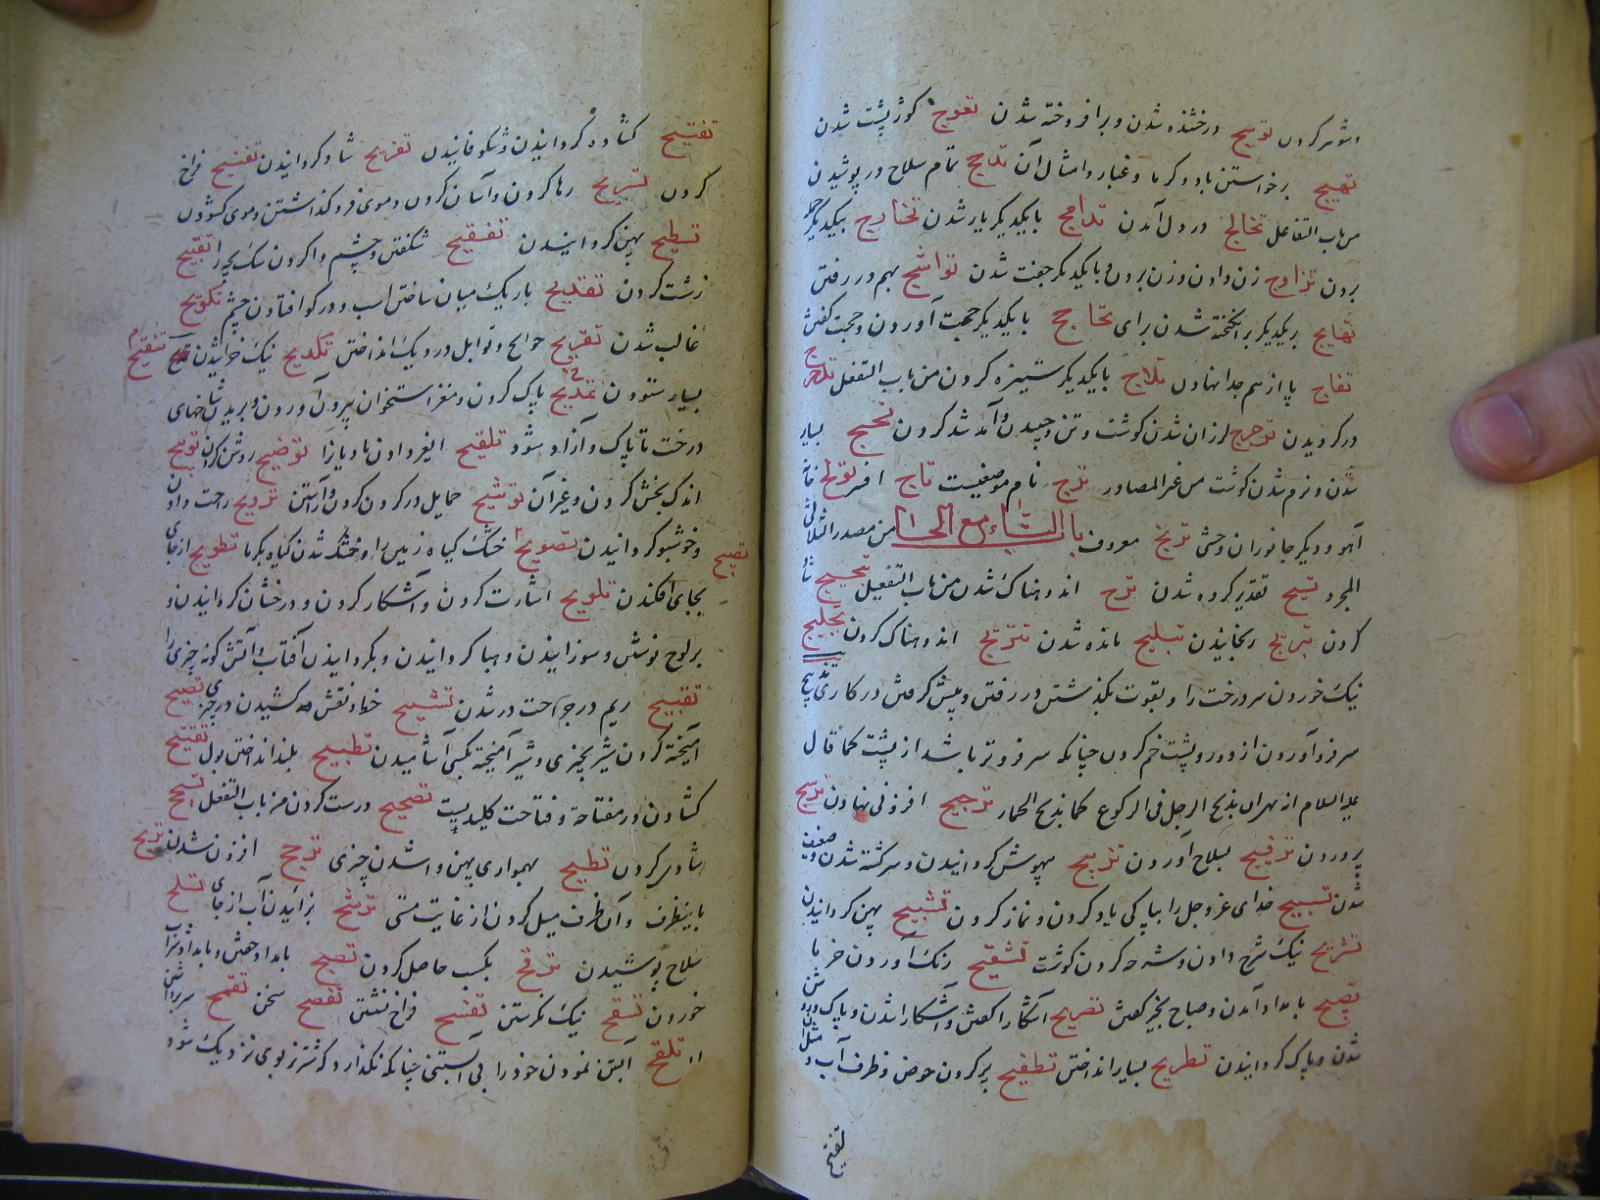 واشوهر کردن توهیج درخشنده شدن و برافروخته شدن تعوج کوژپشت شدن
تهییج برخواستن باد و کرما و غبار و امثال آن تدجج تمام سلاح درپوشیدن
من باب التفاعل تخالج در دل آمدن تدامج بایکدیکر یار شدن تخارج بیکدیکر
بردن تزاوج زن دادن و زن بردن و بایکدیکر جفت شدن تواشج بهم در رفتن
تهایج بریکدیکر برانکیخته شدن برای تحاجج بایکدیکر حجت آوردن و حجت کفتن
تفاج پا از هم جدا نهادن تلاج بایکدیکر ستیزه کردن من باب التفعلل تدحرج
درکردیدن ترجرج لرزان شدن کوشت و تن و جنبیدن و آمد شد کردن بسیار
شدن و نرم شدن کوشت من غیر المصادر ترج نام موضعیست تاج افسر تولج خانه
آهو و دیکر جانوران وحشی ترنج معروف باب التاء مع الحاء من مصدر الثلاثی
المجرد تیح تقدیر کرده شدن ترح اندوهناک شدن من باب التفعیل
کردن تبریح رنجانیدن تبلیح مانده شدن تتریح اندوهناک کردن تجلیح
نیک خوردن سر درخت را و بقوت بکذشتن و در رفتن و پیش کرفتن در کاری تدبیح
سر فرو آوردن از دور و پشت خم کردن چنانکه سر فروتر باشد از پشت کما قال
علیه السلام انه نهی ان یذبح الرجل فی الرکوع کما یذبح الحمار ترجیح افزونی نهادن ترشیح
پروردن ترقیح بصلاح آوردن ترنیح بیهوش کردانیدن و سرکشته شدن و ضعیف
شدن تسبیح خدای عز و جل را بپاکی یاد کردن و نماز کردن تشبیح پهن کردانیدن
تشریح نیک شرح دادن و شرحه کردن کوشت تشقیح رنک آوردن خرما
تصبیح بامداد آمدن و صباح بخیر کفتن تصریح آشکارا کفتن و آشکارا شدن و پاک
شدن و پاک کردانیدن تطریح بسیار انداختن تطفیح پر کردن حوض و ظرف آب و
تفتیح
تفتیح کشاده کردانیدن و شکوفانیدن تفریح شاد کردانیدن تفسیح فراخ
کردن تسریح رها کردن و آسان کردن و موی فرو کذاشتن و موی کشودن
تسطیح پهن کردانیدن تفقیح شکفتن و چشم وا کردن سک بچه را تقبیح
زشت کردن تقدیح باریک میان ساختن اسب و در کو افتادن چشم تکویح
غالب شدن تقزیح حوایج و توابل در دیک انداختن تکدیح نیک خراشیدن تنقیح
بسیار ستودن تمدیح پاک کردن و مغز استخوان بیرون آوردن و بریدن شاخهای
درخت تا پاک و آزاد شود تلقیح ایغر دادن مادیانرا توضیح روشن کردن
اندک بخش کردن و غیر آن توشیح حمایل در کردن کردن و آراستن ترویح راحت دادن
و خوشبو کردانیدن تصویح خشک کیاه زمین را و خشک شدن کیاه بکرما تطویح از جای
بجای افکندن تلویح اشارت کردن و آشکار کردن و درخشان کردانیدن و
بر لوح نوشتن و سوزانیدن و هبا کردانیدن و بکردانیدن آفتاب و آتش کونه چیزی را
تقییح ریم در جراحت در شدن تشبیح خطها و نقش ها کشیدن در چیزی
آمیخته کردن شیر بچیزی و شیر آمیخته بکسی آشامیدن تطبیح بلند انداختن بول تفتیح
کشادن در مفتاحه و فتاحت کلیدیست تصحیح درست کردن من باب التفعل
شادی کردن تطیح بهمواری پهن وا شدن چیزی ترجح افزون شدن ترنح
باینطرف و آن طرف میل کردن از غایت مستی ترشح بزائیدن آب از جای تسلح
سلاح پوشیدن ترقح بکسب حاصل کردن تصبح بامداد خفتن و بامداد شراب
خوردن تنقح نیک نکرستن تفسح فراخ نشستن تفصح سخن تقمح سر برداشتن
تلقح آبستن نمودن خود را بی آبستنی چنانکه نکذارد که شتر نر بوی نزدیک شود